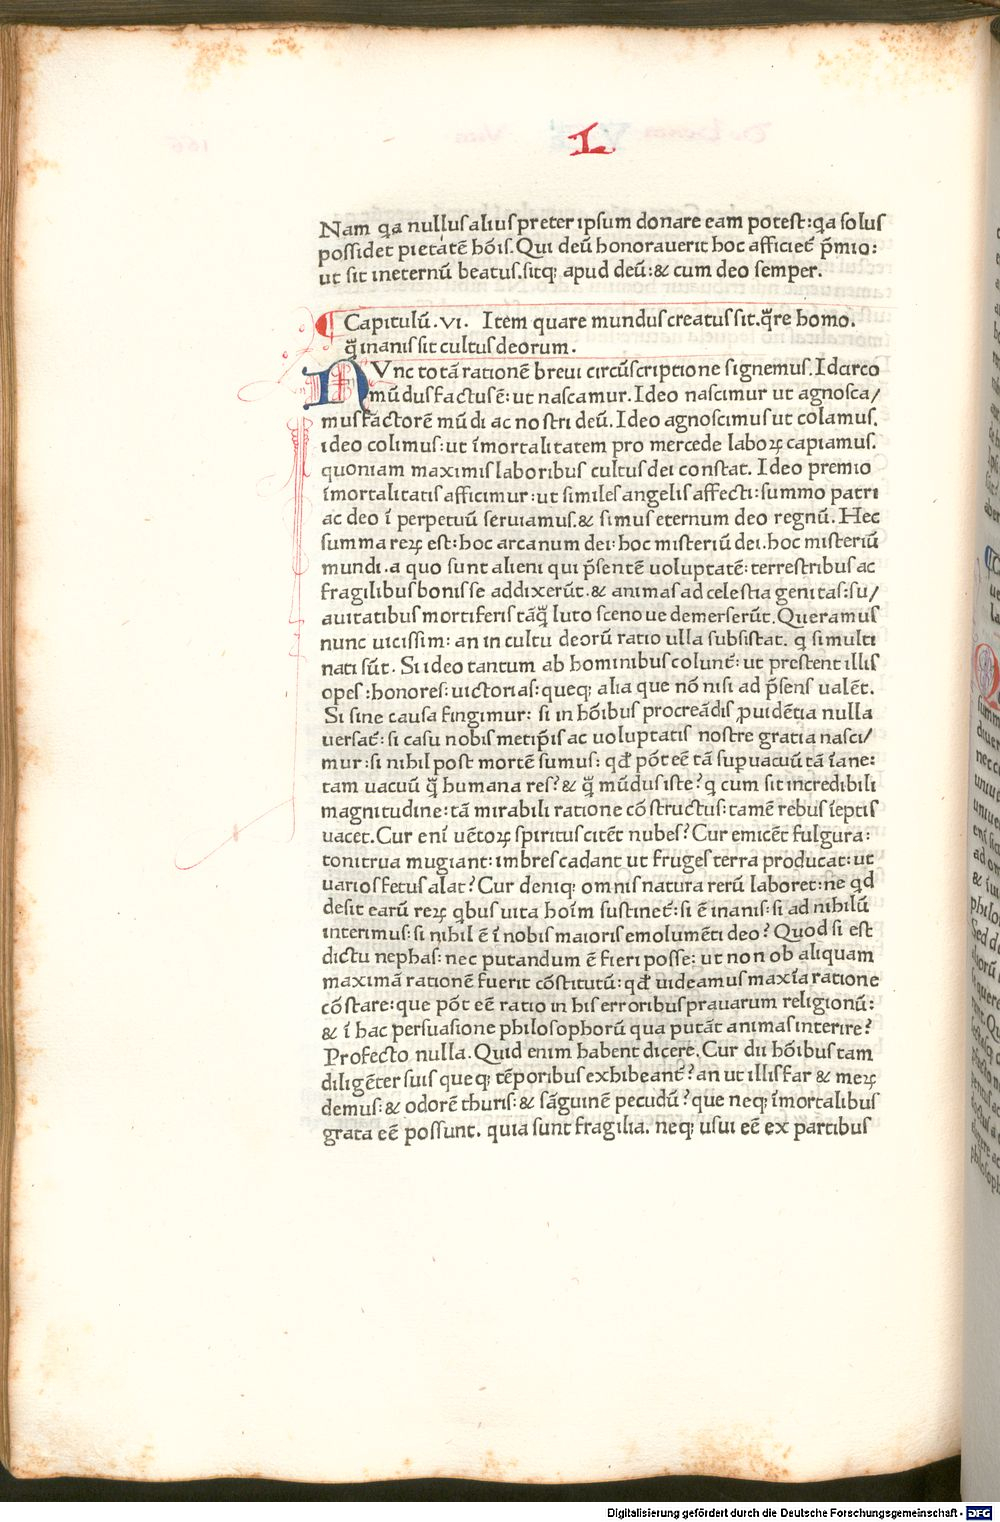 L
Nam qa nullus alius preter ipsum donare eam potest: qa solus
possidet pietatē hoīs. Qui deū honorauerit hoc afficiet̄ p̄mio:
ut sit ineternū beatus. sitq; apud deū: & cum deo semper.
¶ Capitulū .VI. Item quare mundus creatus sit. q̄re homo.
q̄ inanis sit cultus deorum.
NVnc totā rationē breui circūscriptione signemus. Idcirco
mūdus factus ē: ut nascamur. Ideo nascimur ut agnosca/
mus factorē mūdi ac nostri deū. Ideo agnoscimus ut colamus.
ideo colimus: ut īmortalitatem pro mercede laboꝝ capiamus.
quoniam maximis laboribus cultus dei constat. Ideo premio
īmortalitatis afficimur: ut similes angelis affecti: summo patri
ac deo ī perpetuū seruiamus. & simus eternum deo regnū. Hec
summa reꝝ est: hoc arcanum dei: hoc misteriū dei. hoc misteriū
mundi. a quo sunt alieni qui p̄sentē uoluptatē: terrestribus ac
fragilibus bonis se addixerūt. & animas ad celestia genitas: su/
auitatibus mortiferis tāq̄ luto sceno ue demerserūt. Queramus
nunc uicissim: an in cultu deorū ratio ulla subsistat. q si multi
nati sūt. Si ideo tantum ab hominibus colunt̄: ut prestent illis
opes: honores: uictorias: queq; alia que nō nisi ad p̄sens ualēt.
Si sine causa fingimur: si in hoībus procreādis ꝓuidētia nulla
uersat̄: si casu nobis metip̄is ac uoluptatis nostre gratia nasci/
mur: si nihil post mortē sumus: qd̄ pōt eē tā supuacuū tā īane:
tam uacuū q̄ humana res? & q̄ mūdus iste? q cum sit incredibili
magnitudine: tā mirabili ratione cōstructus: tamē rebus īeptis
uacet. Cur enī uētoꝝ spiritus citēt nubes? Cur emicēt fulgura:
tonitrua mugiant: imbres cadant ut fruges terra producat: ut
uarios fetus alat? Cur deniq; omnis natura rerū laboret: ne qd
desit earū reꝝ qbus uita hoīm sustinet̄: si ē inanis: si ad nihilū
interimus: si nihil ē ī nobis maioris emolumēti deo? Quod si est
dictu nephas: nec putandum ē fieri posse: ut non ob aliquam
maximā rationē fuerit cōstitutū: qd̄ uideamus maxīa ratione
cōstare: que pōt eē ratio in his erroribus prauarum religionū:
& ī hac persuasione philosophorū qua putāt animas interire?
Profecto nulla. Quid enim habent dicere. Cur dii hoībus tam
diligēter suis queq; tēporibus exhibeant̄? an ut illis far & meꝝ
demus: & odorē thuris: & sāguinē pecudū? que neq; īmortalibus
grata eē possunt. quia sunt fragilia. neq; usui eē ex partibus
Digitalisierung gefördert durch die Deutsche Forschungsgemeinschaft - DFG